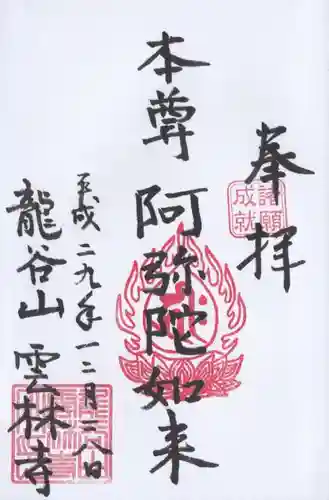 奉拝
諸願成就
本尊 阿弥陀如来
平成二九年一二月二八日
龍谷山 雲林寺